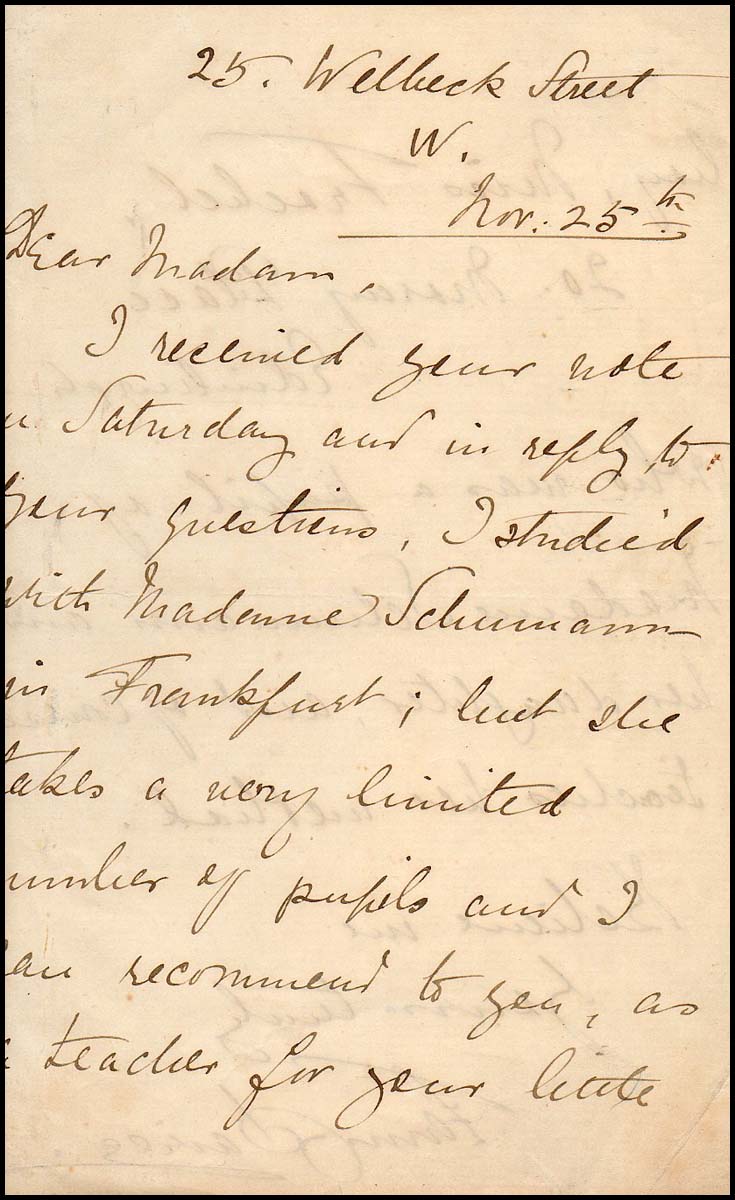 25. Welbeck Street
W.
Nov. 25th
Dear Madam,
I received your note
Saturday and in reply to
your questions, I studied
with Madame Schumann
in Frankfurt; but she
takes a very limited
number of pupils and I
can recommend to you, as
a teacher for your little